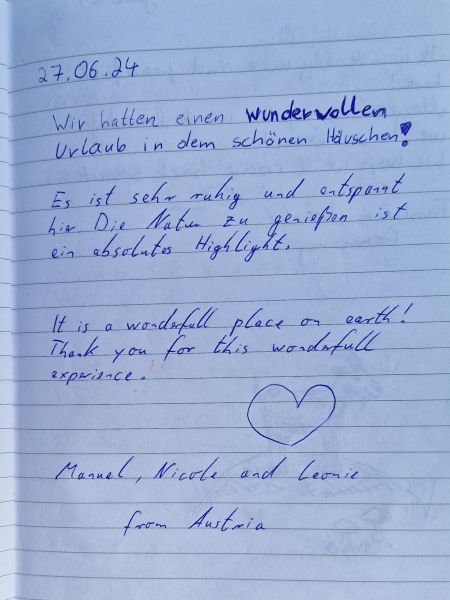 27.06.24
Wir hatten einen wundervollen
Urlaub in dem schönen Häuschen!
Es ist sehr ruhig und entspannt
hier Die Natur zu genießen ist
ein absolutes Highlight.
It is a wonderfull place on earth!
Thank you for this wonderfull
experience.
Manuel, Nicole and Leonie
from Austria